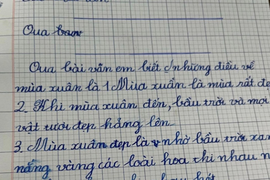 Qua
Qua bài văn em biết những điều về
mùa xuân là 1. Mùa xuân là mùa rất đẹ
2. Khi mùa xuân đến, bầu trời và mọi
vật tươi đẹp hẳng lên.
3. Mùa xuân đẹp là nhờ bầu trời xa
nắng vàng các loài hoa thi nhau n